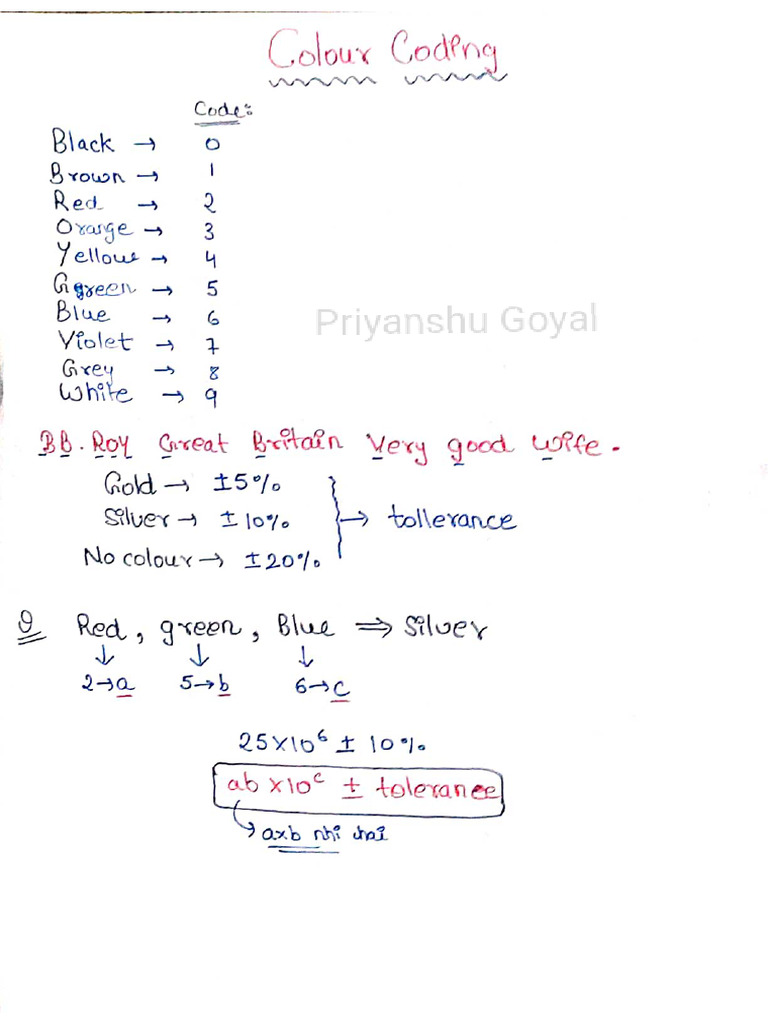 Colour Coding
Code:
Black → 0
Brown → 1
Red → 2
Orange → 3
Yellow → 4
Ggreen → 5
Blue → 6
Violet → 7
Grey → 8
White → 9
Priyanshu Goyal
BB. Roy Great Britain Very good wife.
Gold → ±5%
Silver → ±10%
No colour → ±20%
→ tollerance
Q Red, green, Blue ⇒ Silver
↓ ↓ ↓
2→a 5→b 6→c
25×10⁶ ± 10%
ab ×10ᶜ ± tolerance
axb nhi hai